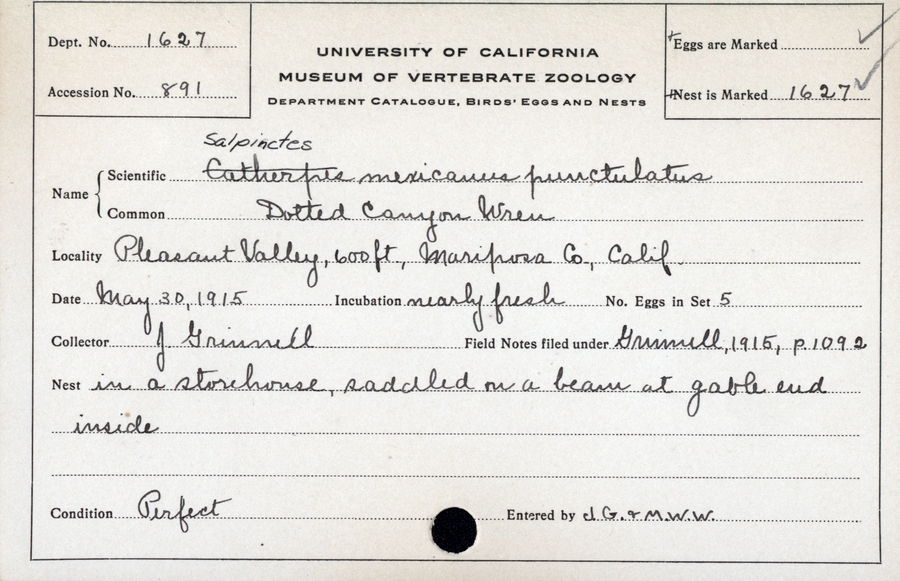 Dept. No. 1627
Accession No. 891
UNIVERSITY OF CALIFORNIA
MUSEUM OF VERTEBRATE ZOOLOGY
DEPARTMENT CATALOGUE, BIRDS' EGGS AND NESTS
Eggs are Marked
Nest is Marked 1627
Salpinctes
Name
Scientific Catherpes mexicanus punctulatus
Common Dotted Canyon Wren
Locality Pleasant Valley, 600 ft., Mariposa Co., Calif.
Date May 30, 1915 Incubation nearly fresh No. Eggs in Set 5
Collector J Grinnell Field Notes filed under Grinnell, 1915, p. 1092
Nest in a storehouse, saddled on a beam at gable end
inside
Condition Perfect Entered by J. G. & M. W. W.